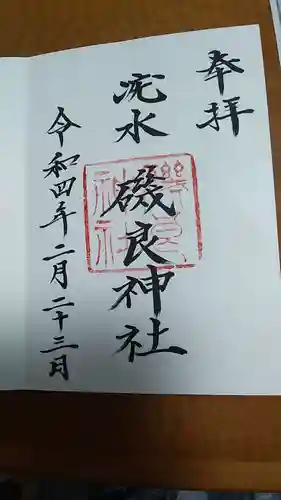 奉拝
疣水
磯良神社
令和四年二月二十三月